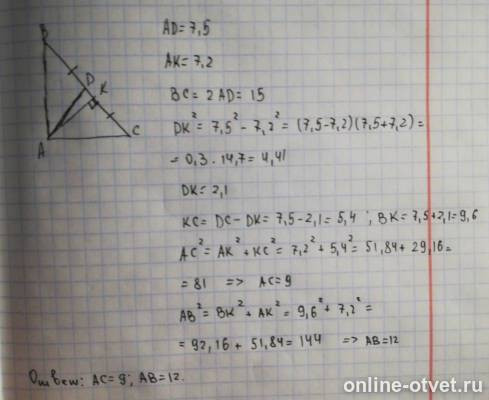 B
D
K
A
C
AD = 7,5
AK = 7,2
BC = 2AD = 15
DK² = 7,5² - 7,2² = (7,5-7,2)(7,5+7,2) =
= 0,3 · 14,7 = 4,41
DK = 2,1
KC = DC - DK = 7,5 - 2,1 = 5,4 ; BK = 7,5+2,1 = 9,6
AC² = AK² + KC² = 7,2² + 5,4² = 51,84 + 29,16 =
= 81 => AC = 9
AB² = BK² + AK² = 9,6² + 7,2² =
= 92,16 + 51,84 = 144 => AB = 12
Ответ: AC = 9; AB = 12.
online-otvet.ru